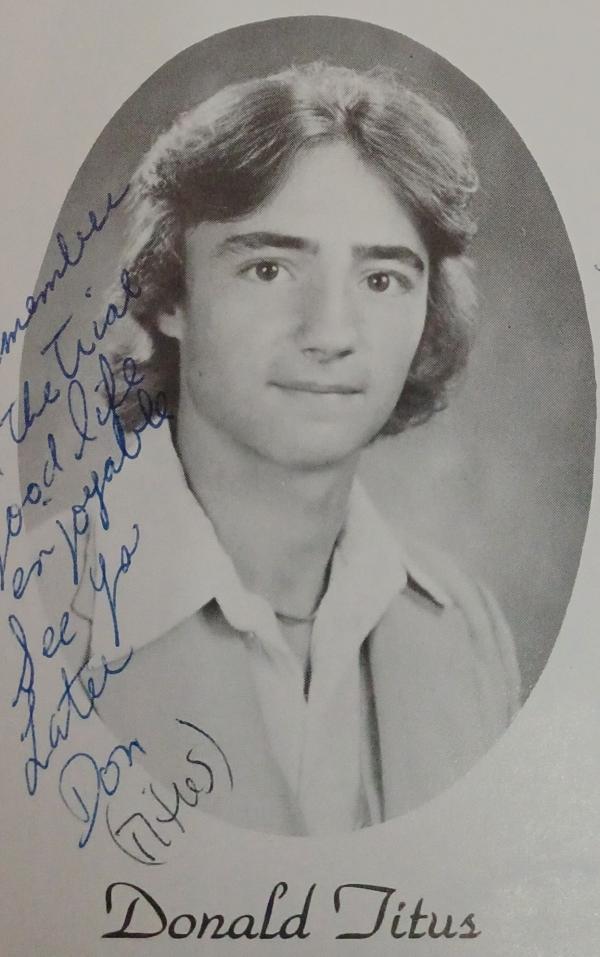 member
the Trial
good life
enjoyable
See Ya
Later
Don
(Titus)
Donald Titus